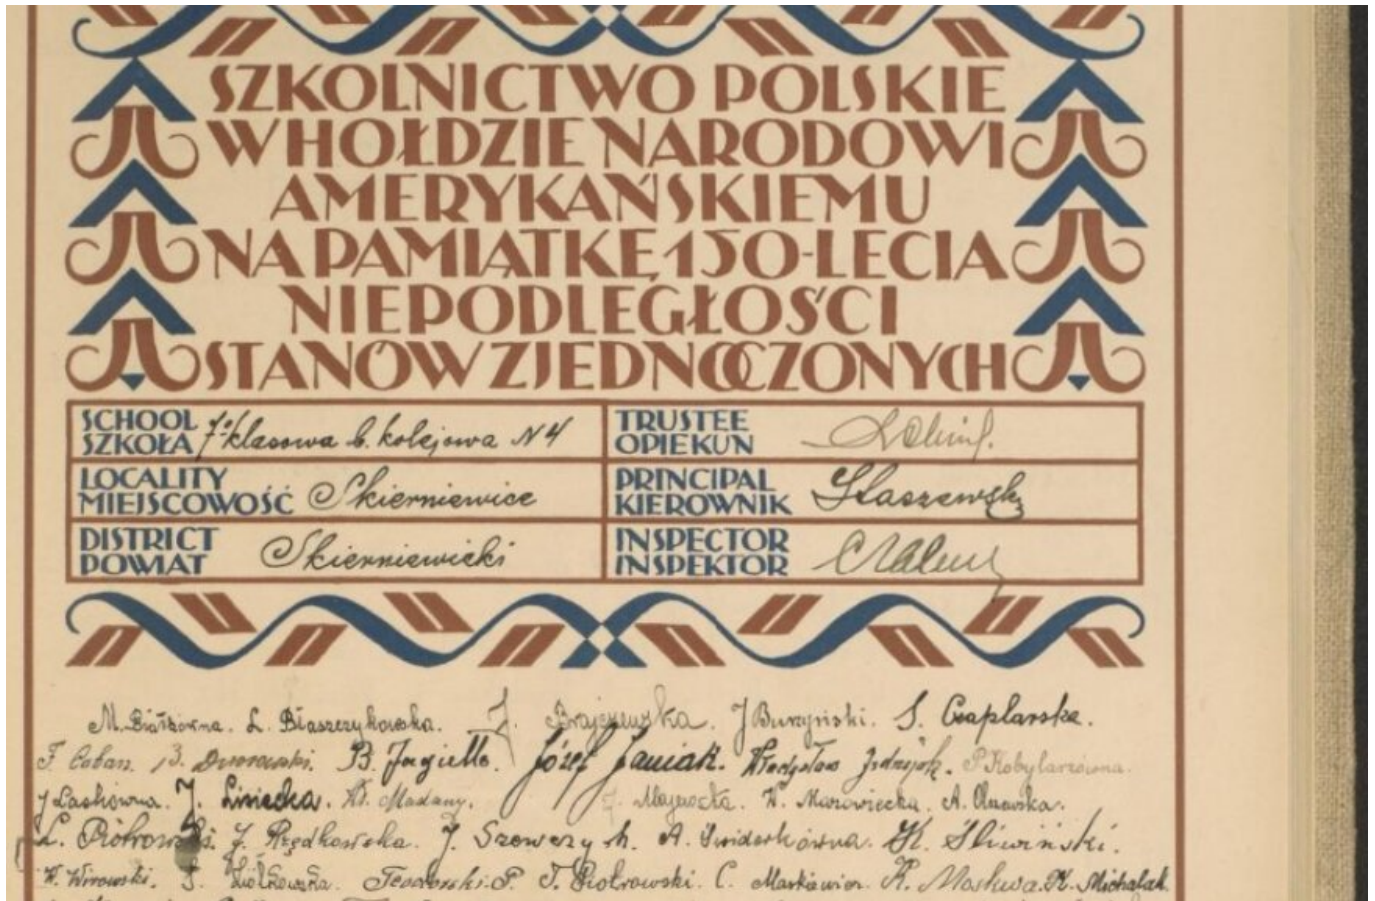 SZKOLNICTWO POLSKIE
W HOŁDZIE NARODOWI
AMERYKAŃSKIEMU
NA PAMIĄTKĘ 150-LECIA
NIEPODLEGŁOŚCI
STANÓW ZJEDNOCZONYCH
SCHOOL
SZKOŁA 7-klasowa b. kolejowa N 4
TRUSTEE
OPIEKUN
LOCALITY
MIEJSCOWOŚĆ Skierniewice
PRINCIPAL
KIEROWNIK Staszewski
DISTRICT
POWIAT Skierniewicki
INSPECTOR
INSPEKTOR
M. L. Błaszczykowska. J. Brajczewska. J Burzyński. S. Czaplarska.
F. Caban. B. Dworawski. B. Jagiełło. Józef Janiak. Władysław P. Kobylarzówna.
J Laskówna. J. Lisiecka. Wł. Madany. W. Mazowiecka. A.
L. Piotrowski. J. Rzędkowska. J. Szewczyk. A. Świderkówna. K. Śliwiński.
W. Wirowski. S. Ziółkowska. P. T. Piotrowski. C. Markiewicz. R. Moskwa. K. Michalak